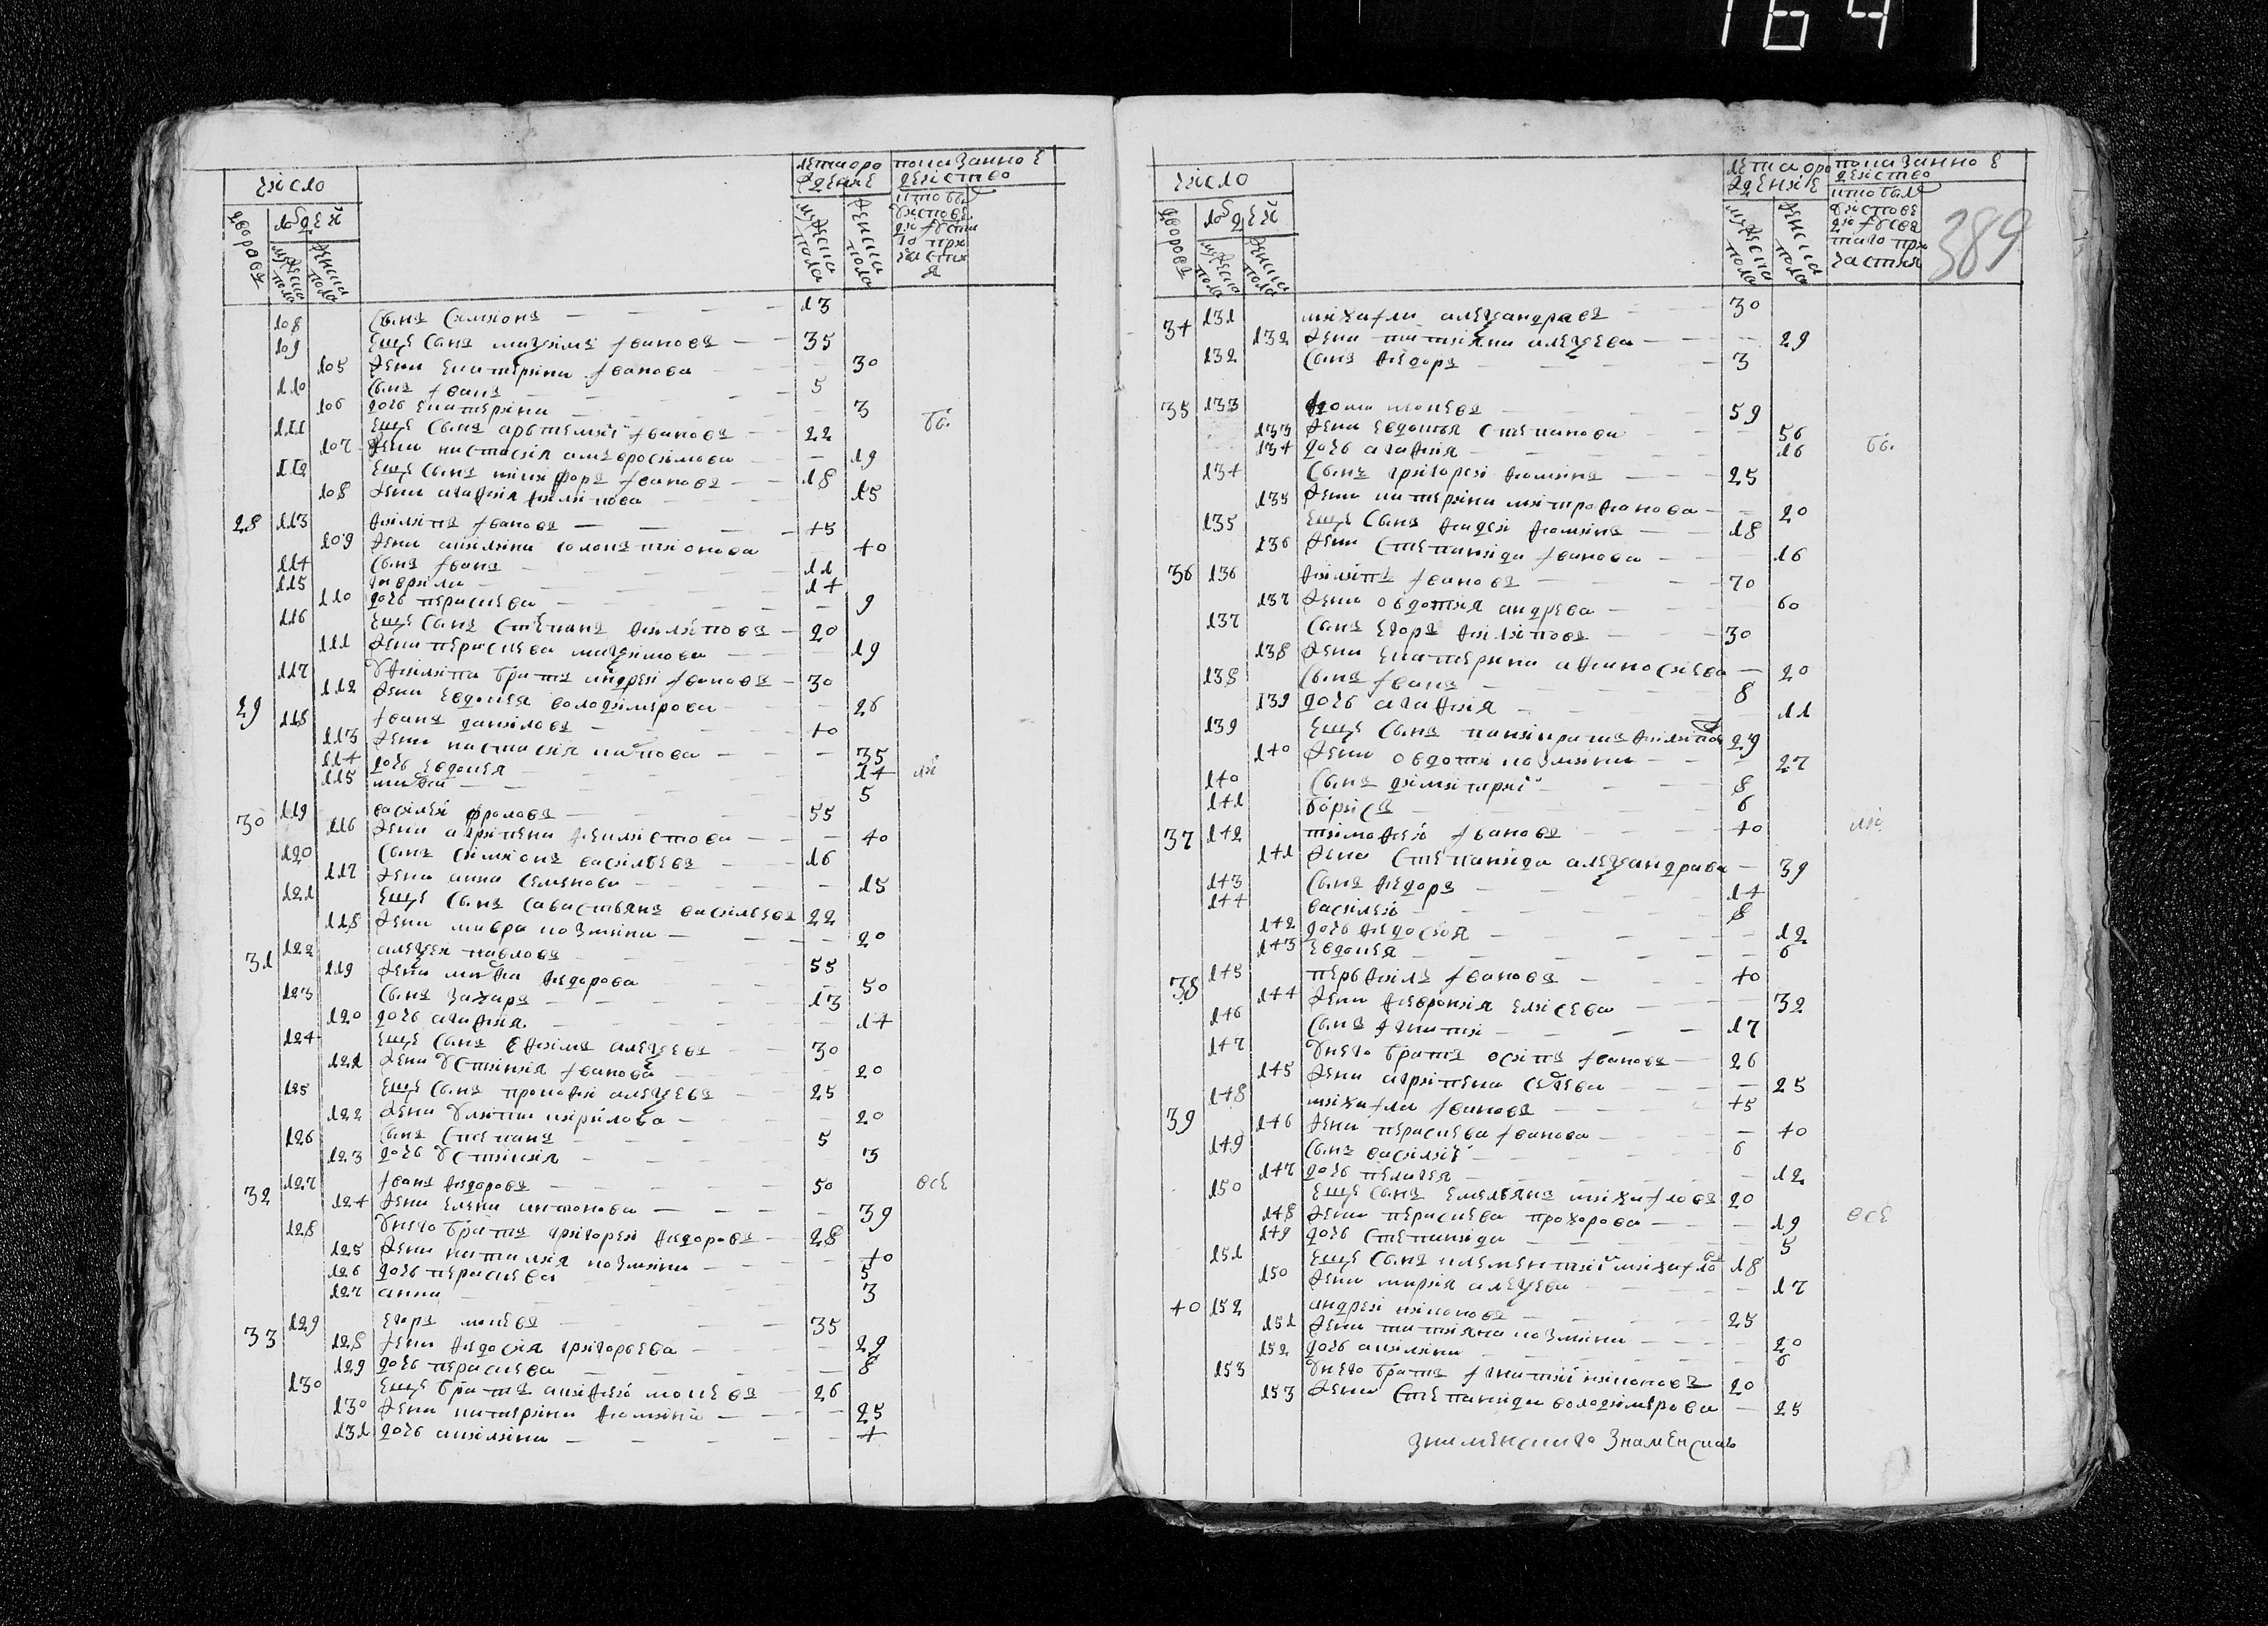 164
число
дворовъ
людей
мужеска пола
женска пола
лета оро
жденiе
мужеска пола
женска пола
показанное
действо
кто былъ
108 сынъ симионъ 13
109 еще сынъ максимъ ивановъ 35
105 жена екатерина иванова 30
110 сынъ иванъ 5
106 дочь екатерина 3
111 еще сынъ артемиi ивановъ 22 бы
107 жена настасия амвросимова 19
112 еще сынъ никифоръ ивановъ 18
108 жена агафия филипова 15
28 113 филипъ ивановъ 45
109 жена акилина 40
114 сынъ иванъ 11
115 гаврила 14
110 дочь перасκева 9
116 еще сынъ степанъ филиповъ 20
111 жена перасκева максимова 19
117 у филипа братъ андреi ивановъ 30
112 жена евдокея володимерова 26
29 118 иванъ даниловъ 40
113 жена настасия карпова 35
114 дочь евдокея 14 ли
115 марфа 5
30 119 василеi фроловъ 55
116 жена агрипена феклистова 40
120 сынъ симионъ васильевъ 16
117 жена анна семенова 15
121 еще сынъ савастьянъ васильевъ 22
118 жена мавра козмина 20
31 122 алеξеi павловъ 55
119 жена марфа федорова 50
123 сынъ захаръ 13
120 дочь агафия 14
124 еще сынъ ефимъ алеξеевъ 30
121 жена устиния иванова 20
125 еще сынъ прокофеi алеξеевъ 25
122 жена улита кирилова 20
126 сынъ степанъ 5
123 дочь устиния 3
32 127 иванъ федоровъ 50 все
124 жена елена антонова 39
128 у него братъ григореi федоровъ 28
125 жена наталия козмина 40
126 дочь перасκева 5
127 анна 3
33 129 егоръ мокевъ 35
128 жена федосия григорьева 29
129 дочь перасκева 8
130 еще братъ мокевъ 26
130 жена катерина фомина 25
131 дочь акилина 4
число
дворовъ
людей
мужеска пола
женска пола
лета оро
жденiе
мужеска пола
женска пола
показанное
действо
кто былъ
389
34 131 михаила алеξандравъ 30
132 жена татияна алеξева 29
132 сынъ федоръ 3
35 133 фома мокевъ 59
133 жена евдокея степанова 56
134 дочь агафия 16 бы
134 сынъ григореi фоминъ 25
135 жена катерина митрофанова 20
135 еще сынъ фадеi фоминъ 18
136 жена степанида иванова 16
36 136 филипъ ивановъ 70
137 жена овдотия андрева 60
137 сынъ егоръ филиповъ 30
138 жена екатерина афанасиева 20
138 сынъ иванъ 8
139 дочь агафия 11
139 еще сынъ панкратъ филипов 29
140 жена овдотя козмина 27
140 сынъ димитриi 8
141 борисъ 6
37 142 тимофеi ивановъ 40 ли
141 жена степанида алеξандрава 39
143 сынъ федоръ 14
144 василеi 8
142 дочь федосия 12
143 евдокея 6
38 145 перфилъ ивановъ 40
144 жена феврония елисева 32
146 сынъ игнатиi 17
147 у него братъ осипъ ивановъ 26
145 жена агрипена 25
39 148 михаила ивановъ 45
146 жена перасκева иванова 40
149 сынъ василиi 6
147 дочь пелагея 12
150 еще сынъ емельянъ михаиловъ 20
148 жена перасκева прохорова 19 все
149 дочь степанида 5
151 еще сынъ клементиi михаиловъ 18
150 жена мария алеξева 17
40 152 андреi никоновъ 25
151 жена татияна козмина 20
152 дочь акилина 6
153 у него братъ игнатиi никоновъ 20
153 жена степанида володимерова 25
знаменскаго знаменскаго